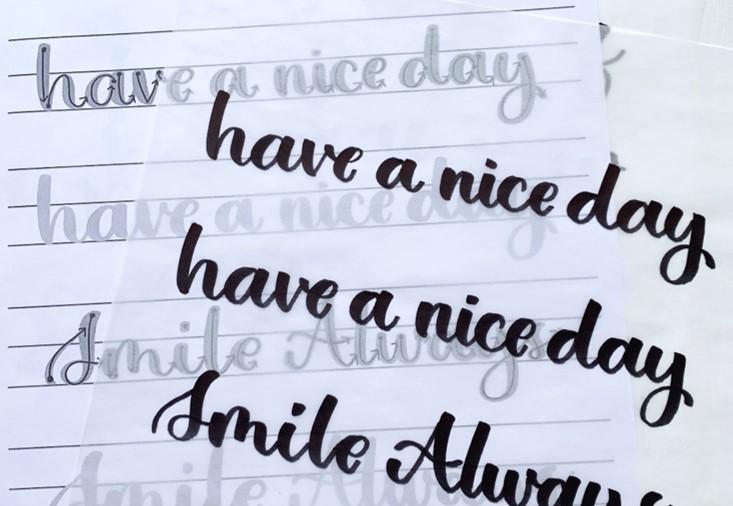 have a nice day
have a nice day
have a nice day
have a nice day
Smile Always
Smile Always
Smile Always